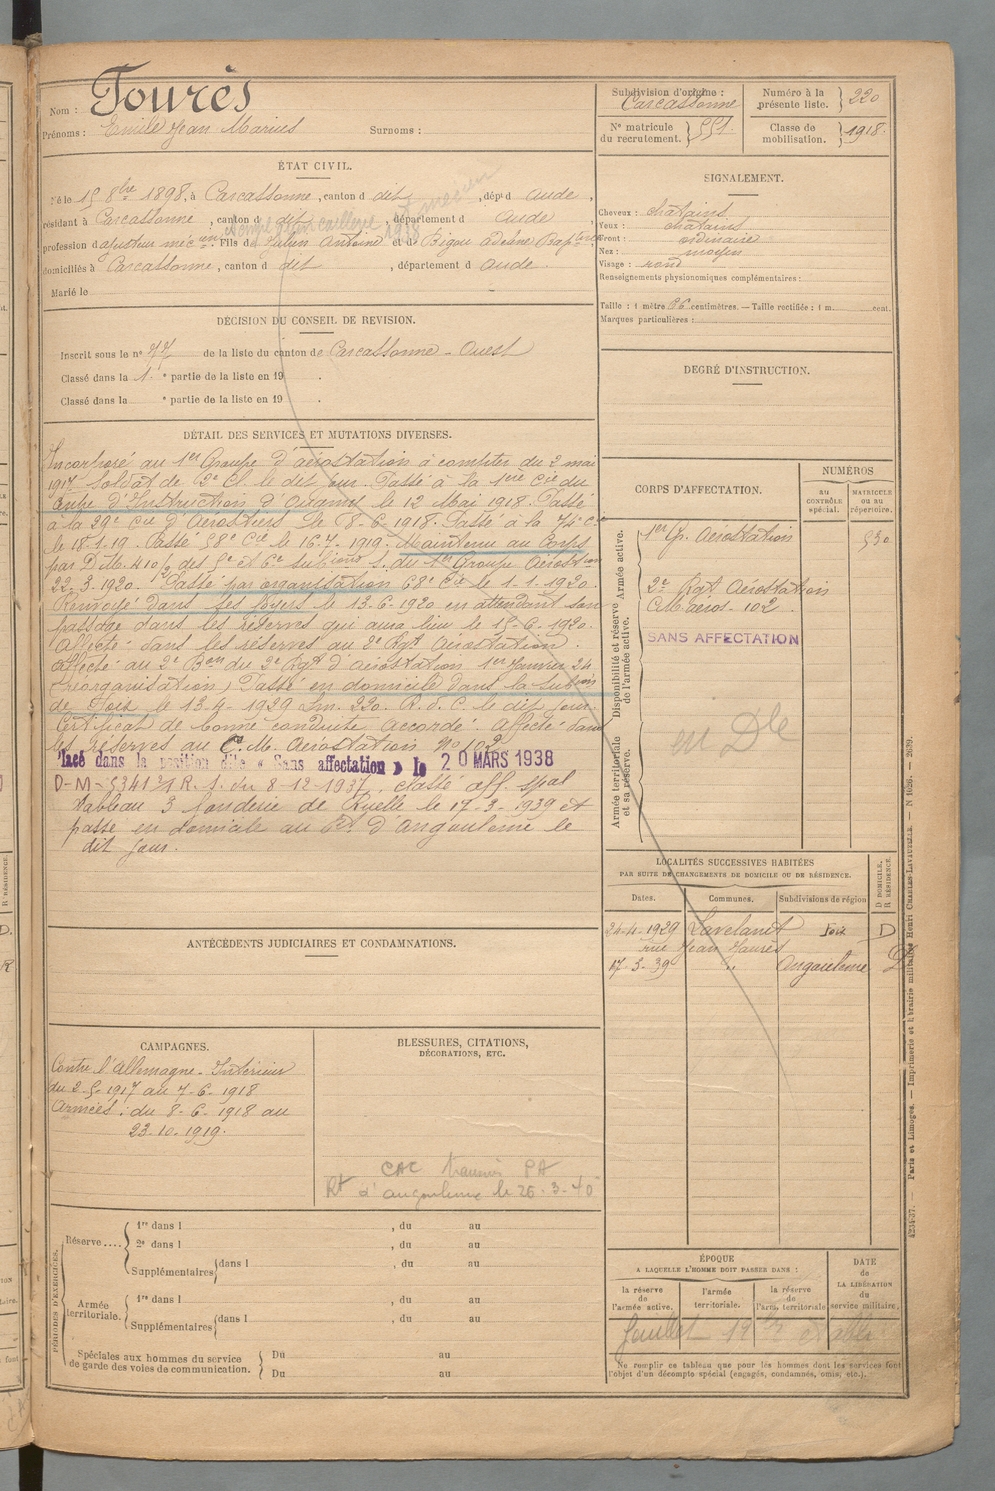 Nom : Tourès
Prénoms : Emile Jean Marius Surnoms :
ÉTAT CIVIL.
Né le 15 8bre 1898, à Carcassonne, canton d dit, dépt d Aude,
résidant à Carcassonne, canton d dit, département d Aude,
profession d ajusteur mécien. Fils d Julien Antoine et de Bigou Adeline Baptistine
domiciliés à Carcassonne, canton d dit, département d Aude.
Marié le
DÉCISION DU CONSEIL DE REVISION.
Inscrit sous le n° 77 de la liste du canton de Carcassonne - Ouest
Classé dans la 1 e partie de la liste en 19 .
Classé dans la e partie de la liste en 19 .
DÉTAIL DES SERVICES ET MUTATIONS DIVERSES.
Incorporé au 1er Groupe d'aérostation à compter du 2 mai
1917 Soldat de 2e Cl. le dit jour. Passé à la 1ère Cie du
Centre d'Instruction d' le 12 Mai 1918. Passé
à la 29e Cie d'Aérostiers le 8-6-1918. Passé à la 74e Cie
le 18-1-19. Passé 58e Cie le 16-7-1919. Maintenu au Corps
par D.M. 410 des 5e et 6e subions s. du 1er Groupe Aérostion
22-3-1920. Passé par organisation 68e Cie le 1-1-1920.
Renvoyé dans ses foyers le 13-6-1920 en attendant son
passage dans les réserves qui aura lieu le 15-6-1920.
Affecté dans les réserves au 2e Rgt Aérostation.
Affecté au 2e Bon du 2e Rgt d'aérostation 1er Janvier 24
(réorganisation) Passé en domicile dans la Subion
de Foix le 13-4-1929 Lm. 220. R.d.C. le dit jour.
Certificat de bonne conduite accordé. Affecté dans
les réserves au C.M. Aérostation No 102
Placé dans la position dite « Sans affectation » le 20 MARS 1938
D-M-5341 R. 1. du 8-12-1937. Classé aff. spal
tableau 3 fonderie de Ruelle le 17-3-1939 et
passe en domicile au Rt d'Angoulême le
dit jour.
ANTÉCÉDENTS JUDICIAIRES ET CONDAMNATIONS.
CAMPAGNES.
Contre l'Allemagne - Intérieur
du 2-5-1917 au 7-6-1918
Armées : du 8-6-1918 au
23-10-1919.
BLESSURES, CITATIONS,
DÉCORATIONS, ETC.
CAC PA
Rt d'angouleme le 26-3-40
PÉRIODES D'EXERCICES.
Réserve....
1re dans l , du au
2e dans l , du au
Supplémentaires dans l , du au
Armée territoriale.
1re dans l , du au
Supplémentaires dans l , du au
Spéciales aux hommes du service
de garde des voies de communication.
Du au
Du au
Subdivision d'origine :
Carcassonne
Numéro à la
présente liste. 220
N° matricule
du recrutement. 551.
Classe de
mobilisation. 1918.
SIGNALEMENT.
Cheveux : châtains
Yeux : châtains
Front : ordinaire
Nez : moyen
Visage : rond
Renseignements physionomiques complémentaires :
Taille : 1 mètre 66 centimètres. — Taille rectifiée : 1 m. cent.
Marques particulières :
DEGRÉ D'INSTRUCTION.
CORPS D'AFFECTATION.
NUMÉROS
AU CONTRÔLE spécial.
MATRICULE OU AU répertoire.
Armée active.
1er Gp. Aérostation 530
Disponibilité et réserve de l'armée active.
2e Rgt Aérostation
C.M. aéros - 102
SANS AFFECTATION
Armée territoriale et sa réserve.
en Dle
LOCALITÉS SUCCESSIVES HABITÉES
PAR SUITE DE CHANGEMENTS DE DOMICILE OU DE RÉSIDENCE.
Dates. Communes. Subdivisions de région D DOMICILE. R RÉSIDENCE.
24-4-1929 Lavelanet Foix D
rue Jean Jaurès
17-3-39 " Angoulême D
ÉPOQUE
A LAQUELLE L'HOMME DOIT PASSER DANS :
la réserve de l'armée active.
l'armée territoriale.
la réserve de l'arm. territoriale
DATE de LA LIBÉRATION du service militaire.
Ne remplir ce tableau que pour les hommes dont les services font
l'objet d'un décompte spécial (engagés, condamnés, omis, etc.).
4234-37. — Paris et Limoges. — Imprimerie et librairie militaires Henri CHARLES-LAVAUZELLE. — N 1026. — 2639.